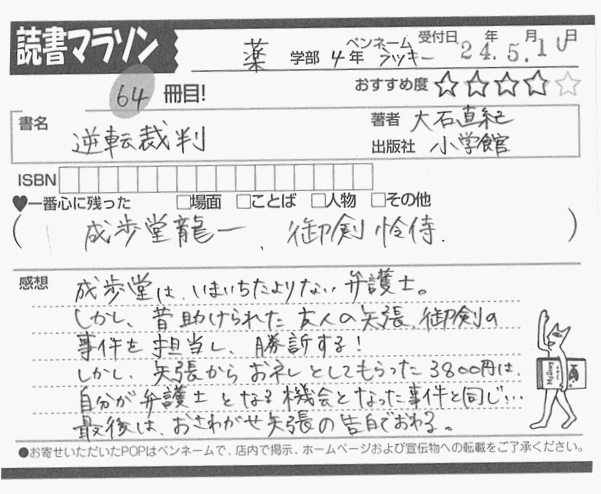 読書マラソン
薬 学部 4年 ペンネーム ラッキー 受付日 24年5月10日
64 冊目! おすすめ度 ☆☆☆☆☆
書名 逆転裁判 著者 大石直紀
出版社 小学館
ISBN
♥一番心に残った □場面 □ことば □人物 □その他
( 成歩堂龍一、御剣怜侍. )
感想 成歩堂は、いまいちたよりない弁護士。
しかし、昔助けられた友人の矢張、御剣の
事件を担当し、勝訴する!
しかし、矢張からお礼としてもらった3800円は、
自分が弁護士となる機会となった事件と同じ…
最後は、おさわがせ矢張の告白でおわる。
●お寄せいただいたPOPはペンネームで、店内で掲示、ホームページおよび宣伝物への転載をご了承ください。